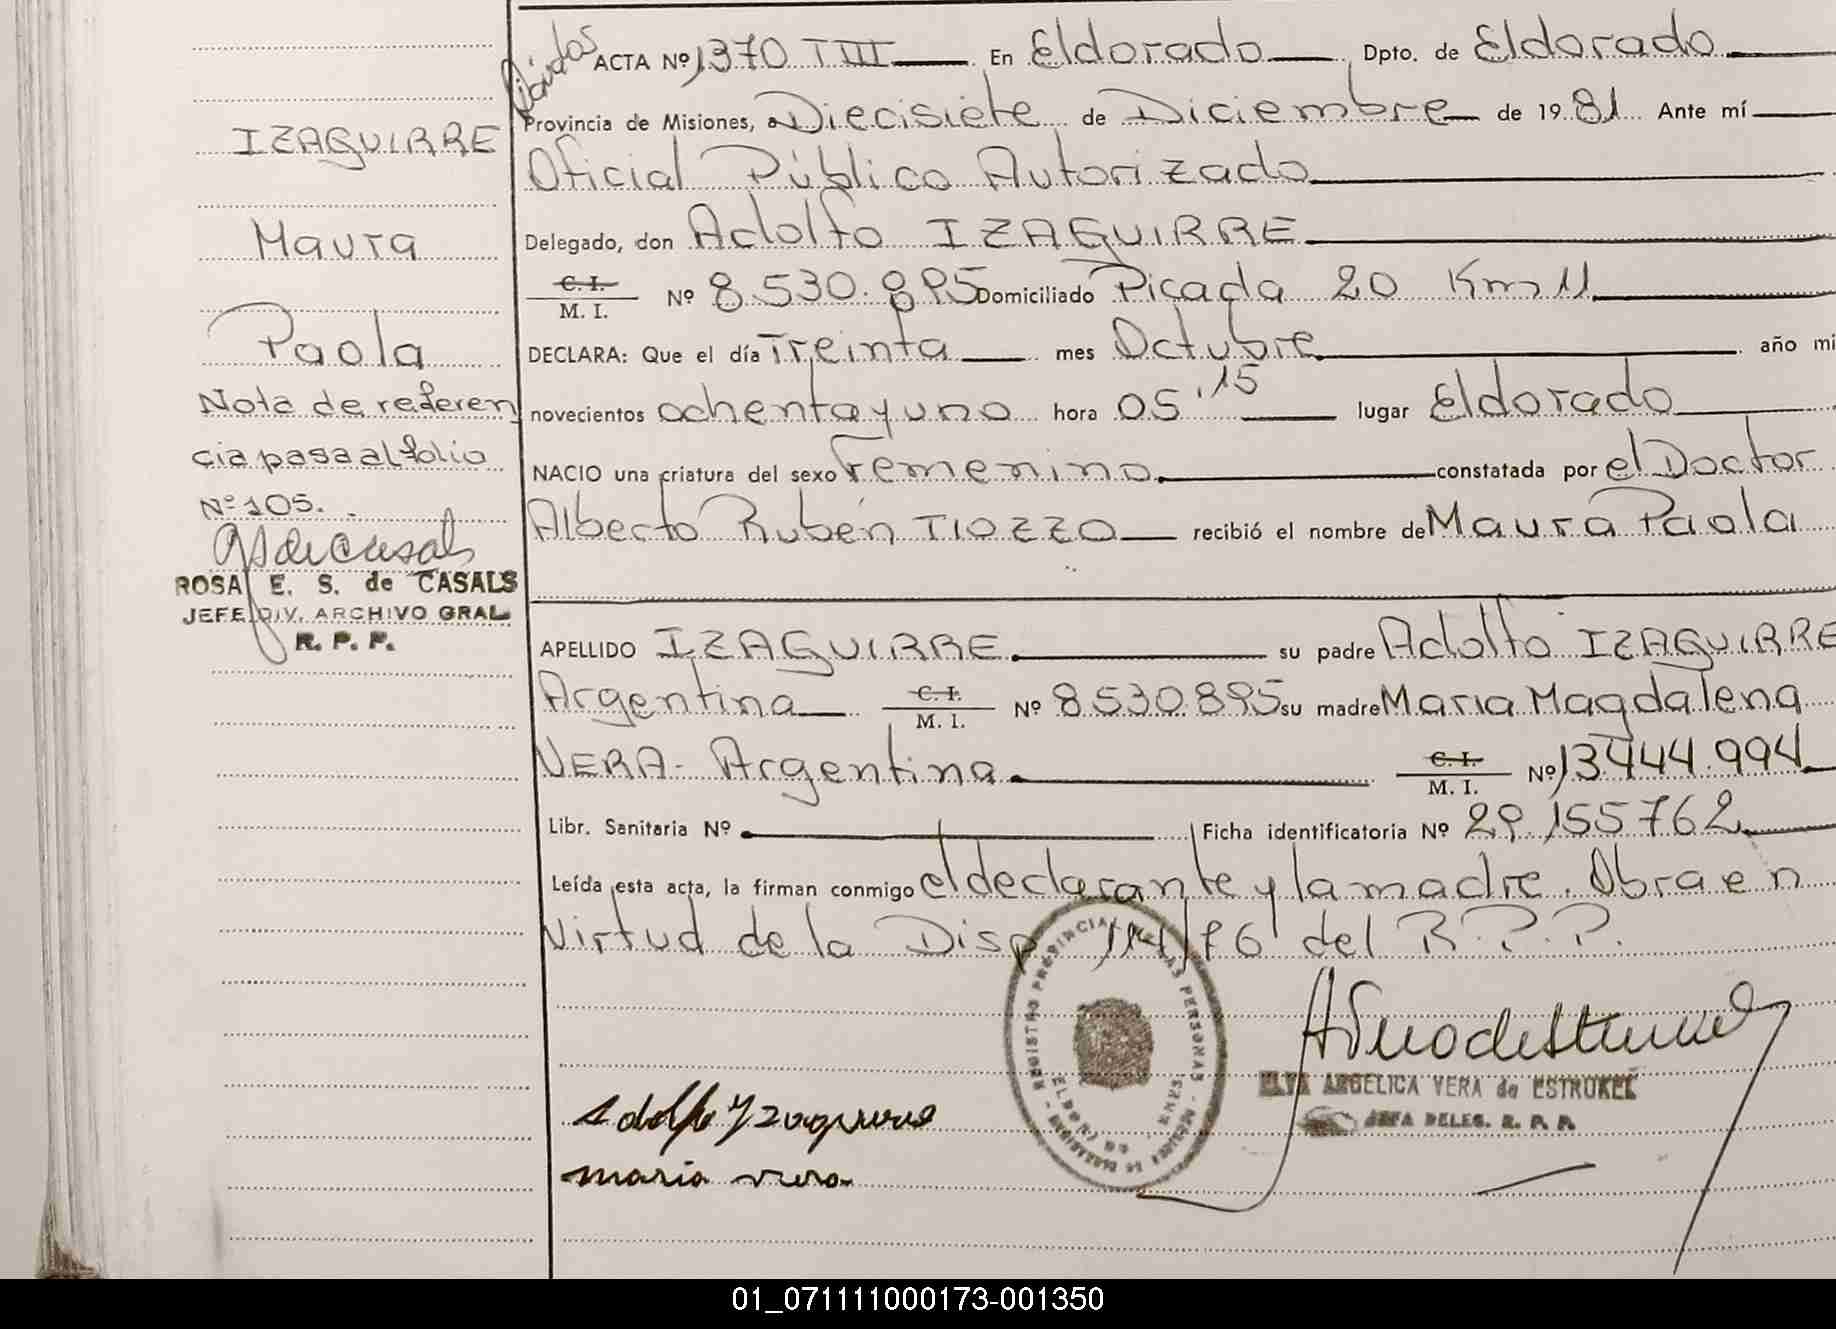 IZAGUIRRE
Maura
Paola
Nota de referen
cia pasa al folio
Nº 105.
ROSA E. S. de CASALS
JEFE DIV. ARCHIVO GRAL
R. P. P.
ACTA Nº 1370 T III En Eldorado Dpto. de Eldorado
Provincia de Misiones, a Diecisiete de Diciembre de 1981 Ante mí
Oficial Público Autorizado
Delegado, don Adolfo IZAGUIRRE
C. I.
M. I. Nº 8.530.895 Domiciliado Picada 20 Km 11
DECLARA: Que el día Treinta mes Octubre año mi
novecientos ochenta y uno hora 05'15 lugar Eldorado
NACIO una criatura del sexo Femenino constatada por el Doctor
Alberto Rubén TIOZZO recibió el nombre de Maura Paola
APELLIDO IZAGUIRRE su padre Adolfo IZAGUIRRE
Argentina C. I.
M. I. Nº 8.530.895 su madre Maria Magdalena
VERA - Argentina C. I.
M. I. Nº 13.444.994
Libr. Sanitaria Nº Ficha identificatoria Nº 29.155762
Leída esta acta, la firman conmigo el declarante y la madre. Obra en
Virtud de la Disp 114/76 del R.P.P.
REGISTRO PROVINCIAL DE LAS PERSONAS
ELDORADO
MISIONES
ELVA ANGELICA VERA de ESTRUKEL
JEFA DELEG. R. P. P.
Adolfo Yzaguirre
maria vera
01_071111000173-001350